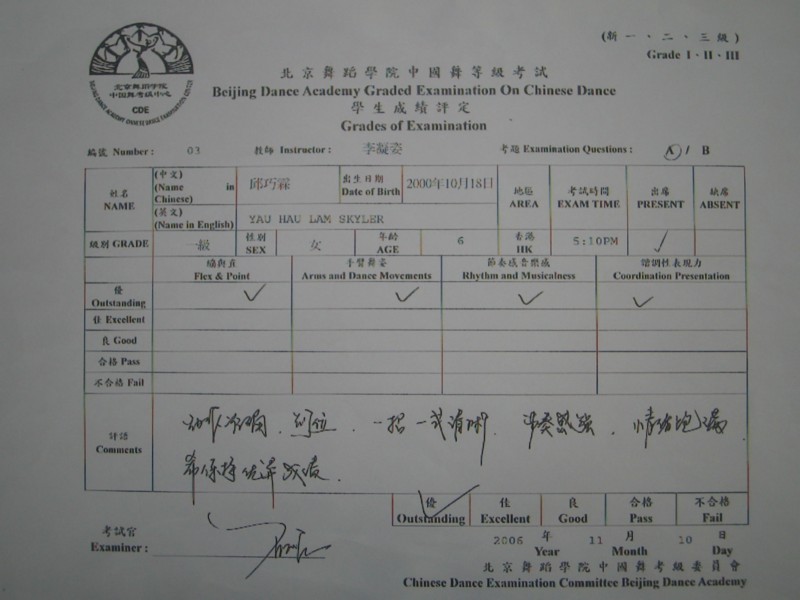 (新一、二、三級)
Grade I · II · III
北京舞蹈學院
中國舞考級中心
CDE
北京舞蹈學院中國舞等級考試
Beijing Dance Academy Graded Examination On Chinese Dance
學生成績評定
Grades of Examination
編號 Number: 03 教師 Instructor: 李凝姿 考題 Examination Questions: A / B
姓名 NAME
(中文) (Name in Chinese) 邱巧霖
出生日期 Date of Birth 2000年10月18日
地區 AREA
考試時間 EXAM TIME
出席 PRESENT
缺席 ABSENT
(英文) (Name in English) YAU HAU LAM SKYLER
級別 GRADE 一級 性別 SEX 女 年齡 AGE 6 香港 HK 5:10PM ✓
繃與直 Flex & Point
手臂舞姿 Arms and Dance Movements
節奏感音樂感 Rhythm and Musicalness
諧調性表現力 Coordination Presentation
優 Outstanding ✓ ✓ ✓ ✓
佳 Excellent
良 Good
合格 Pass
不合格 Fail
評語 Comments
到位、一招一式清晰
希保持优异成绩.
優 Outstanding ✓
佳 Excellent
良 Good
合格 Pass
不合格 Fail
考試官 Examiner:
2006 年 Year 11 月 Month 10 日 Day
北京舞蹈學院中國舞考級委員會
Chinese Dance Examination Committee Beijing Dance Academy